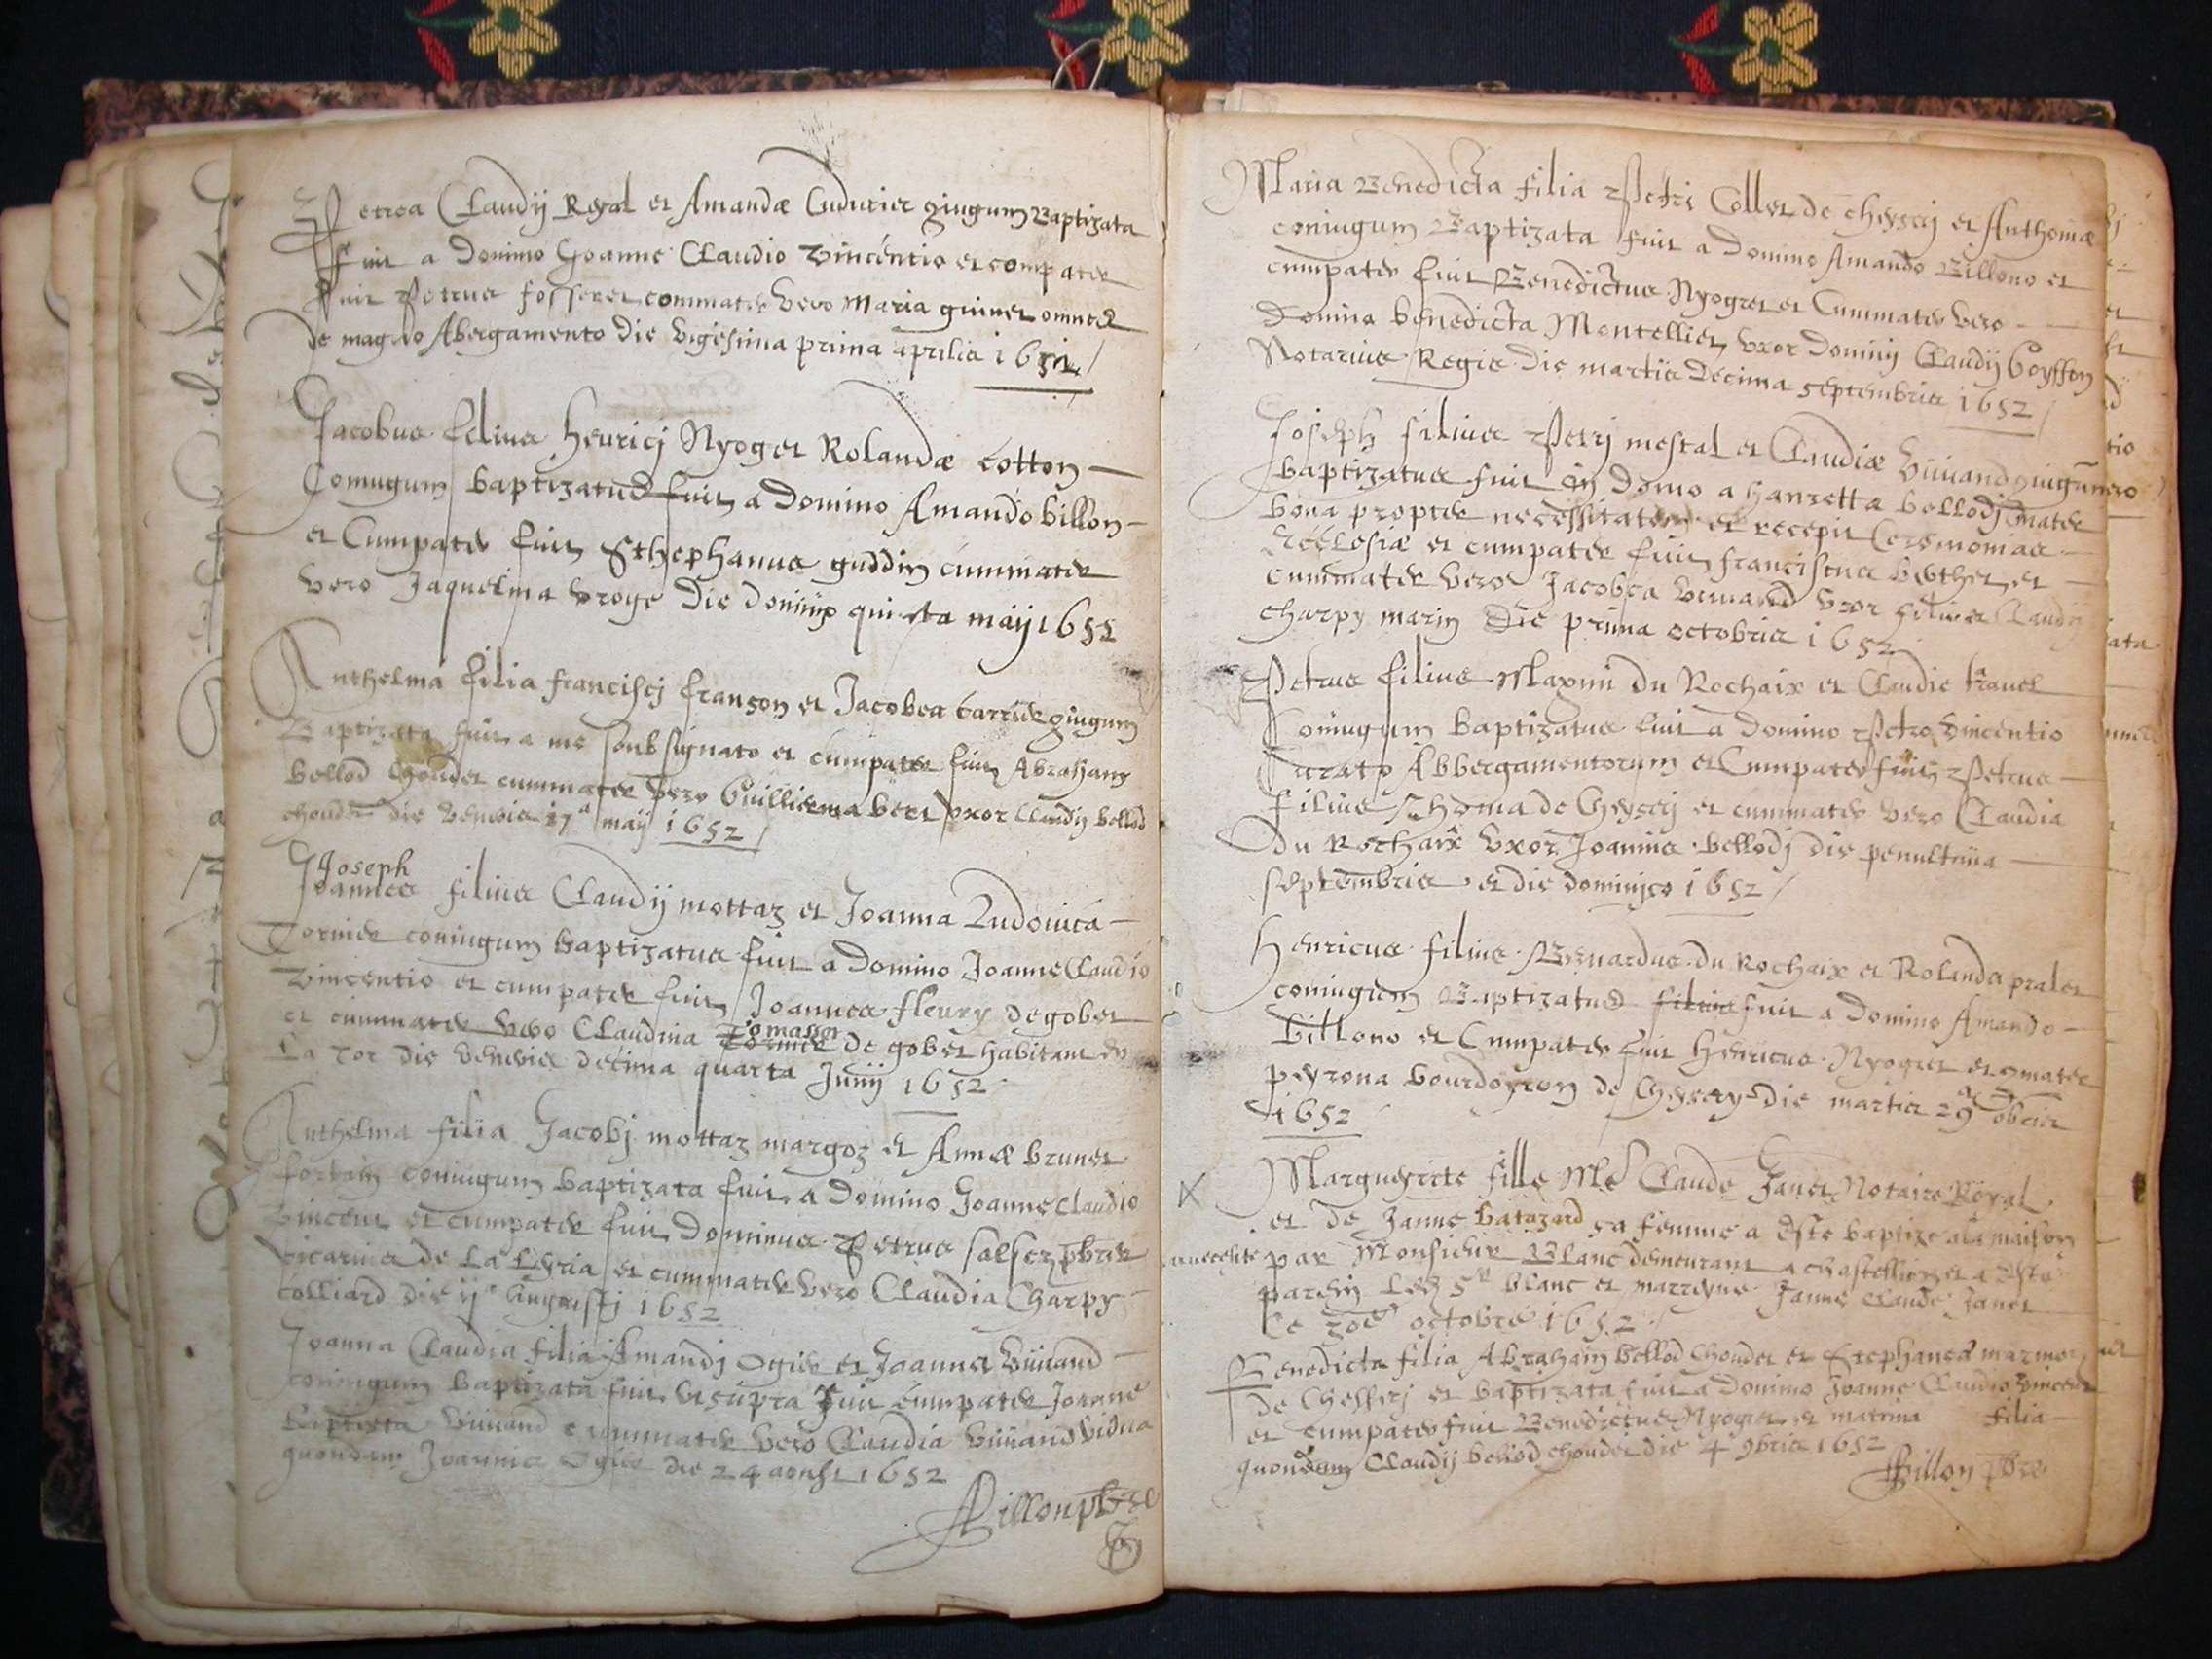 Petrea Claudij Reyal et Amandæ Cudurier 9iugum Baptizata
fuit a Domino Joanne Claudio Vincentio et compater
fuit Petrus fosseret commater vero Maria guinet omnes
de magno Abergamento die vigesima prima aprilis 1652
Jacobus filius henricj Nyoget Rolandæ cotton
Coniugum baptizatus fuit a domino Amando billon
et Cumpater fuit Sthephanus guddin cummater
vero Jaquelina vroge die dominico quinta maij 1652
Anthelma filia franciscj françon et Jacobea barride 9iugum
Baptizata fuit a me soubsignato et cumpater fuit Abraham
bellod chouder cummater vero Guillierma beet vxor Claudij bellod
chouder die veneris 17ᵃ maij 1652
Joseph
Joannes filius Claudij mottaz et Joanna Ludouica
Tornier coniugum baptizatus fuit a Domino Joanne Claudio
Vincentio et cumpater fuit Joannes fleury de gobet
et cummater vero Claudina Tomasset de gobet habitant en
La Tor die veneris decima quarta Junij 1652
Anthelma filia Jacobj mottaz margoz et Annæ brunet
fortain coniugum baptizata fuit a Domino Joanne Claudio
Vincent et cumpater fuit Dominus Petrus salsez pbre
vicarius de La Leyria et cummater vero Claudia Charpy
colliard die ij augustj 1652
Joanna Claudia filia Amandj Ogier et Joannea Viuand
coniugum baptizata fuit vt supra fuit cumpater Joanne
baptista Viuand cummater vero Claudia Viuand vidua
quondam Joannis Ogier die 24 aoust 1652
Billon pbre
Maria Benedicta filia Petri Collet de cheyserj et Anthoniæ
coniugum Baptizata fuit a Domino Amando Billono et
cumpater fuit Benedictus Nyoget et Cummater vero
Domina benedicta Montellier vxor Dominj Claudij Goyffon
Notarius Regis die martis decima septembris 1652
Joseph filius Petrj mestal et Claudiæ Viuand 9iugum
baptizatus fuit in domo a hanretta bellodj mater
bona propter necessitatem et recepit Ceremonias
Ecclesiæ et cumpater fuit franciscus buthet et
cummater vero Jacobea Viuand vxor filius Claudij
charpy marin die prima octobris 1652
Petrus filius Maximi du Rochaix et Claudie trauel
Coniugum baptizatus fuit a domino Petro Vincentio
Curato Abbergamentorum et Cumpater fuit Petrus
filius Thoma de Cheyserj et cummater vero Claudia
du Rochaix vxor Joannis bellodj die penultima
septembris et die dominico 1652
Henricus filius Bernardus du Rochaix et Rolanda pralet
coniugum Baptizatus filius fuit a Domino Amando
billono et Cumpater fuit Henricus Nyoget et 9mater
peyrona bourdoyron de Cheysery die martis 29ᵃ 8bris
1652
Margueritte fille Mᵉ Claude Janet Notaire Royal
et de Janne batazard sa femme a este baptize a la maison
par Monsieur Blanc demeurant a chastellion et a este
parrin Ledᵗ Sʳ blanc et marreyne Janne Claude Janet
Le 30ᵉ octobre 1652
Benedicta filia Abraham bellod chouder et Stephanea marinet
de Chesserj et baptizata fuit a Domino Joanne Claudio Vincent
et cumpater fuit Benedictus Nyoget et matrina filia
quondam Claudij bellod chouder die 4 9bris 1652
Billon pbre